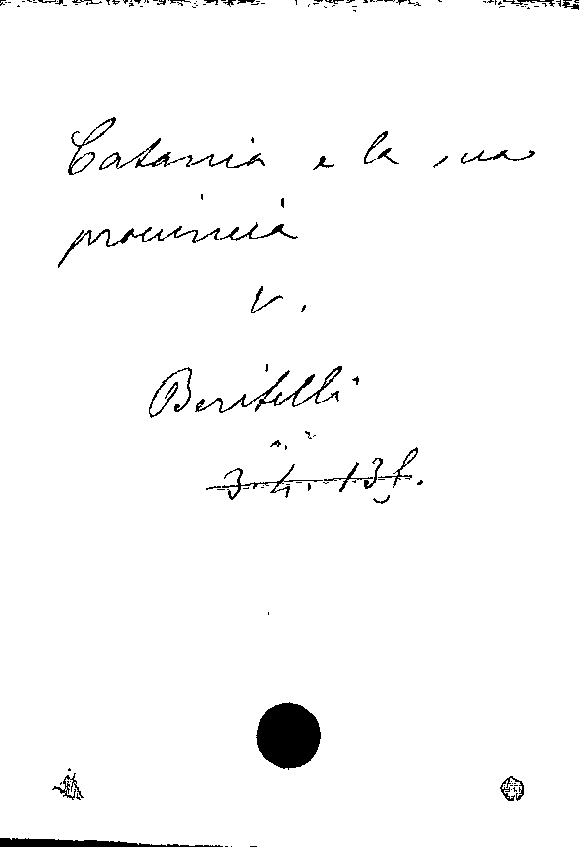 Catania e la sua
provincia
v.
Beritelli
3.4.13f.